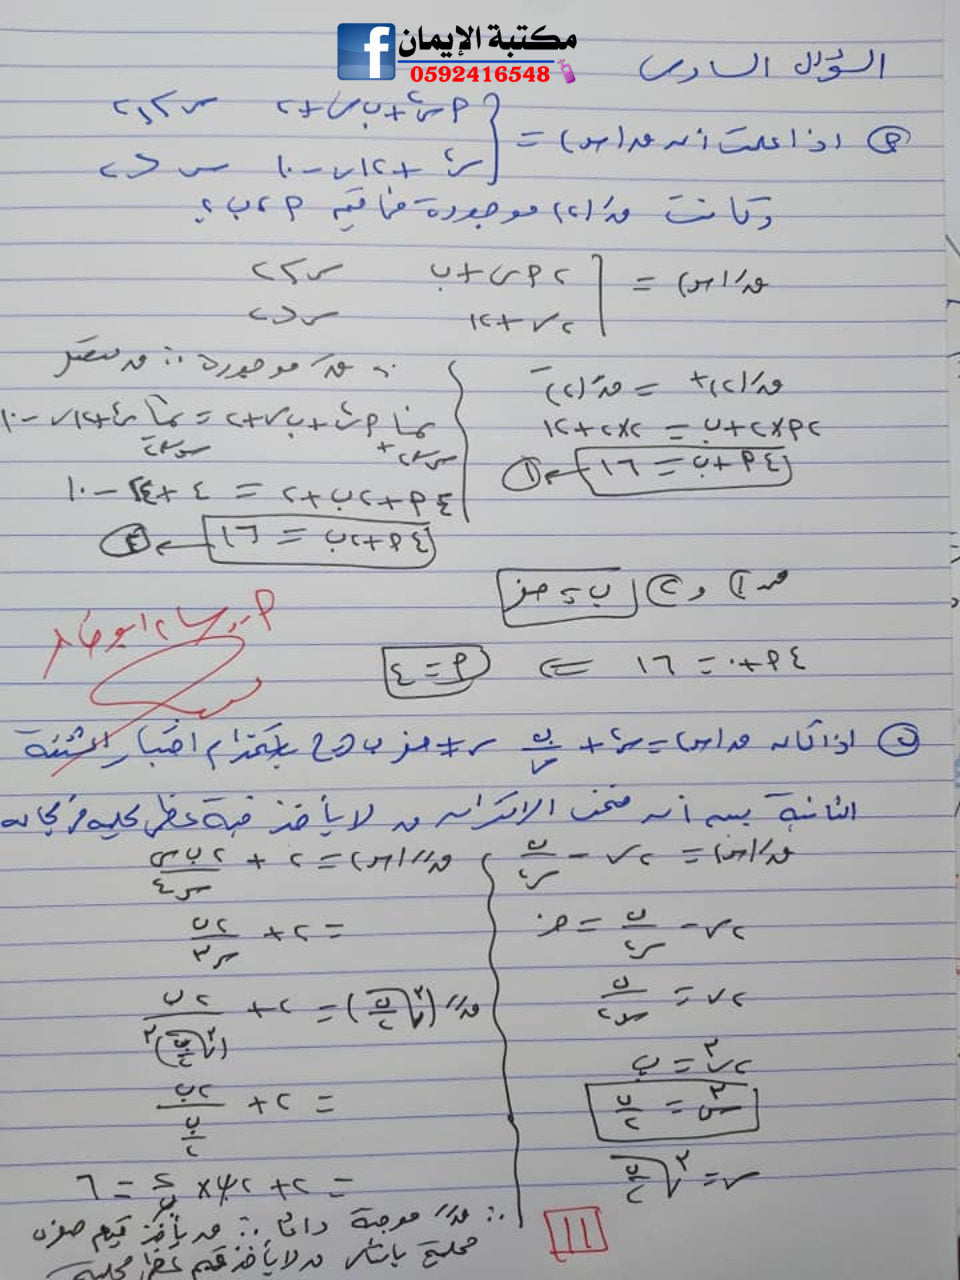 مكتبة الإيمان
0592416548
السؤال السادس
أ) اذا علمت أن ق(س) = { أس² + ب س + ٢ ، س ≥ ٢
س² + ١٢س - ١٠ ، س < ٢
وكانت قَ(٢) موجودة فما قيم أ ، ب ؟
قَ(س) = { ٢أس + ب ، س > ٢
٢س + ١٢ ، س < ٢
قَ(٢)+ = قَ(٢)-
٢أ×٢ + ب = ٢×٢ + ١٢
٤أ + ب = ١٦ ← ①
∵ قَ موجودة ∴ ق متصل
نها أس² + ب س + ٢ = نها س² + ١٢س - ١٠
س←٢+ س←٢-
٤أ + ٢ب + ٢ = ٤ + ٢٤ - ١٠
٤أ + ٢ب = ١٦ ← ②
من ① و ② ب = صفر
٤أ + ٠ = ١٦ ⇐ أ = ٤
ب) اذا كان ق(س) = س² + ب/س ، س ≠ صفر ، ب ∈ ح باستخدام اختبار المشتقة
الثانية بين أن منحنى الاقتران ق لا يأخذ قيمة عظمى محلية في مجاله
قَ(س) = ٢س - ب/س²
٢س - ب/س² = ٠
٢س = ب/س²
٢س³ = ب
س³ = ب/٢
س = ³√(ب/٢)
قً(س) = ٢ + ٢ب س/س⁴
= ٢ + ٢ب/س³
قً(³√(ب/٢)) = ٢ + ٢ب/(³√(ب/٢))³
= ٢ + ٢ب/(ب/٢)
= ٢ + ٢ب × ٢/ب = ٦
∴ قً موجبة دائما ∴ ق يأخذ قيم صغرى
محلية ق لا يأخذ قيم عظمى محلية
١١